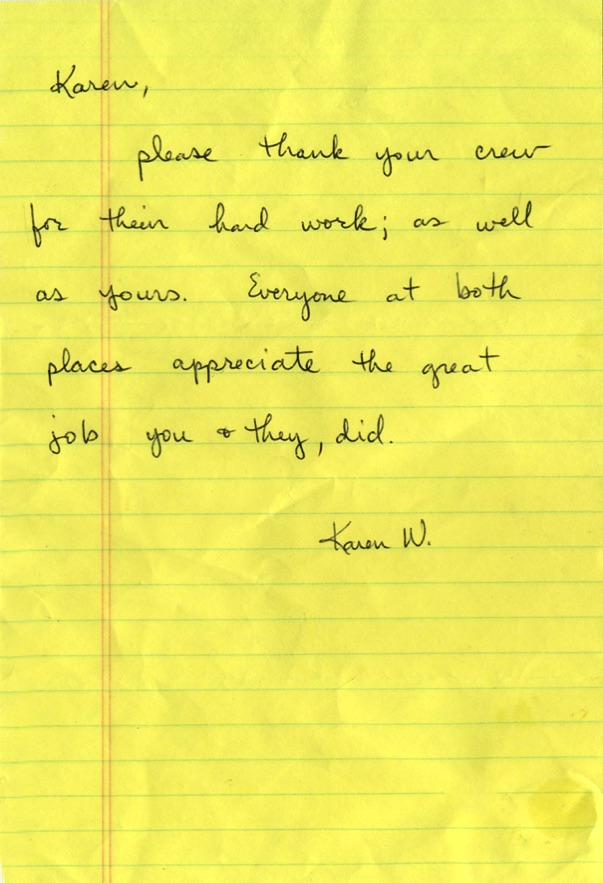 Karen,
please thank your crew
for their hard work; as well
as yours. Everyone at both
places appreciate the great
job you & they, did.
Karen W.